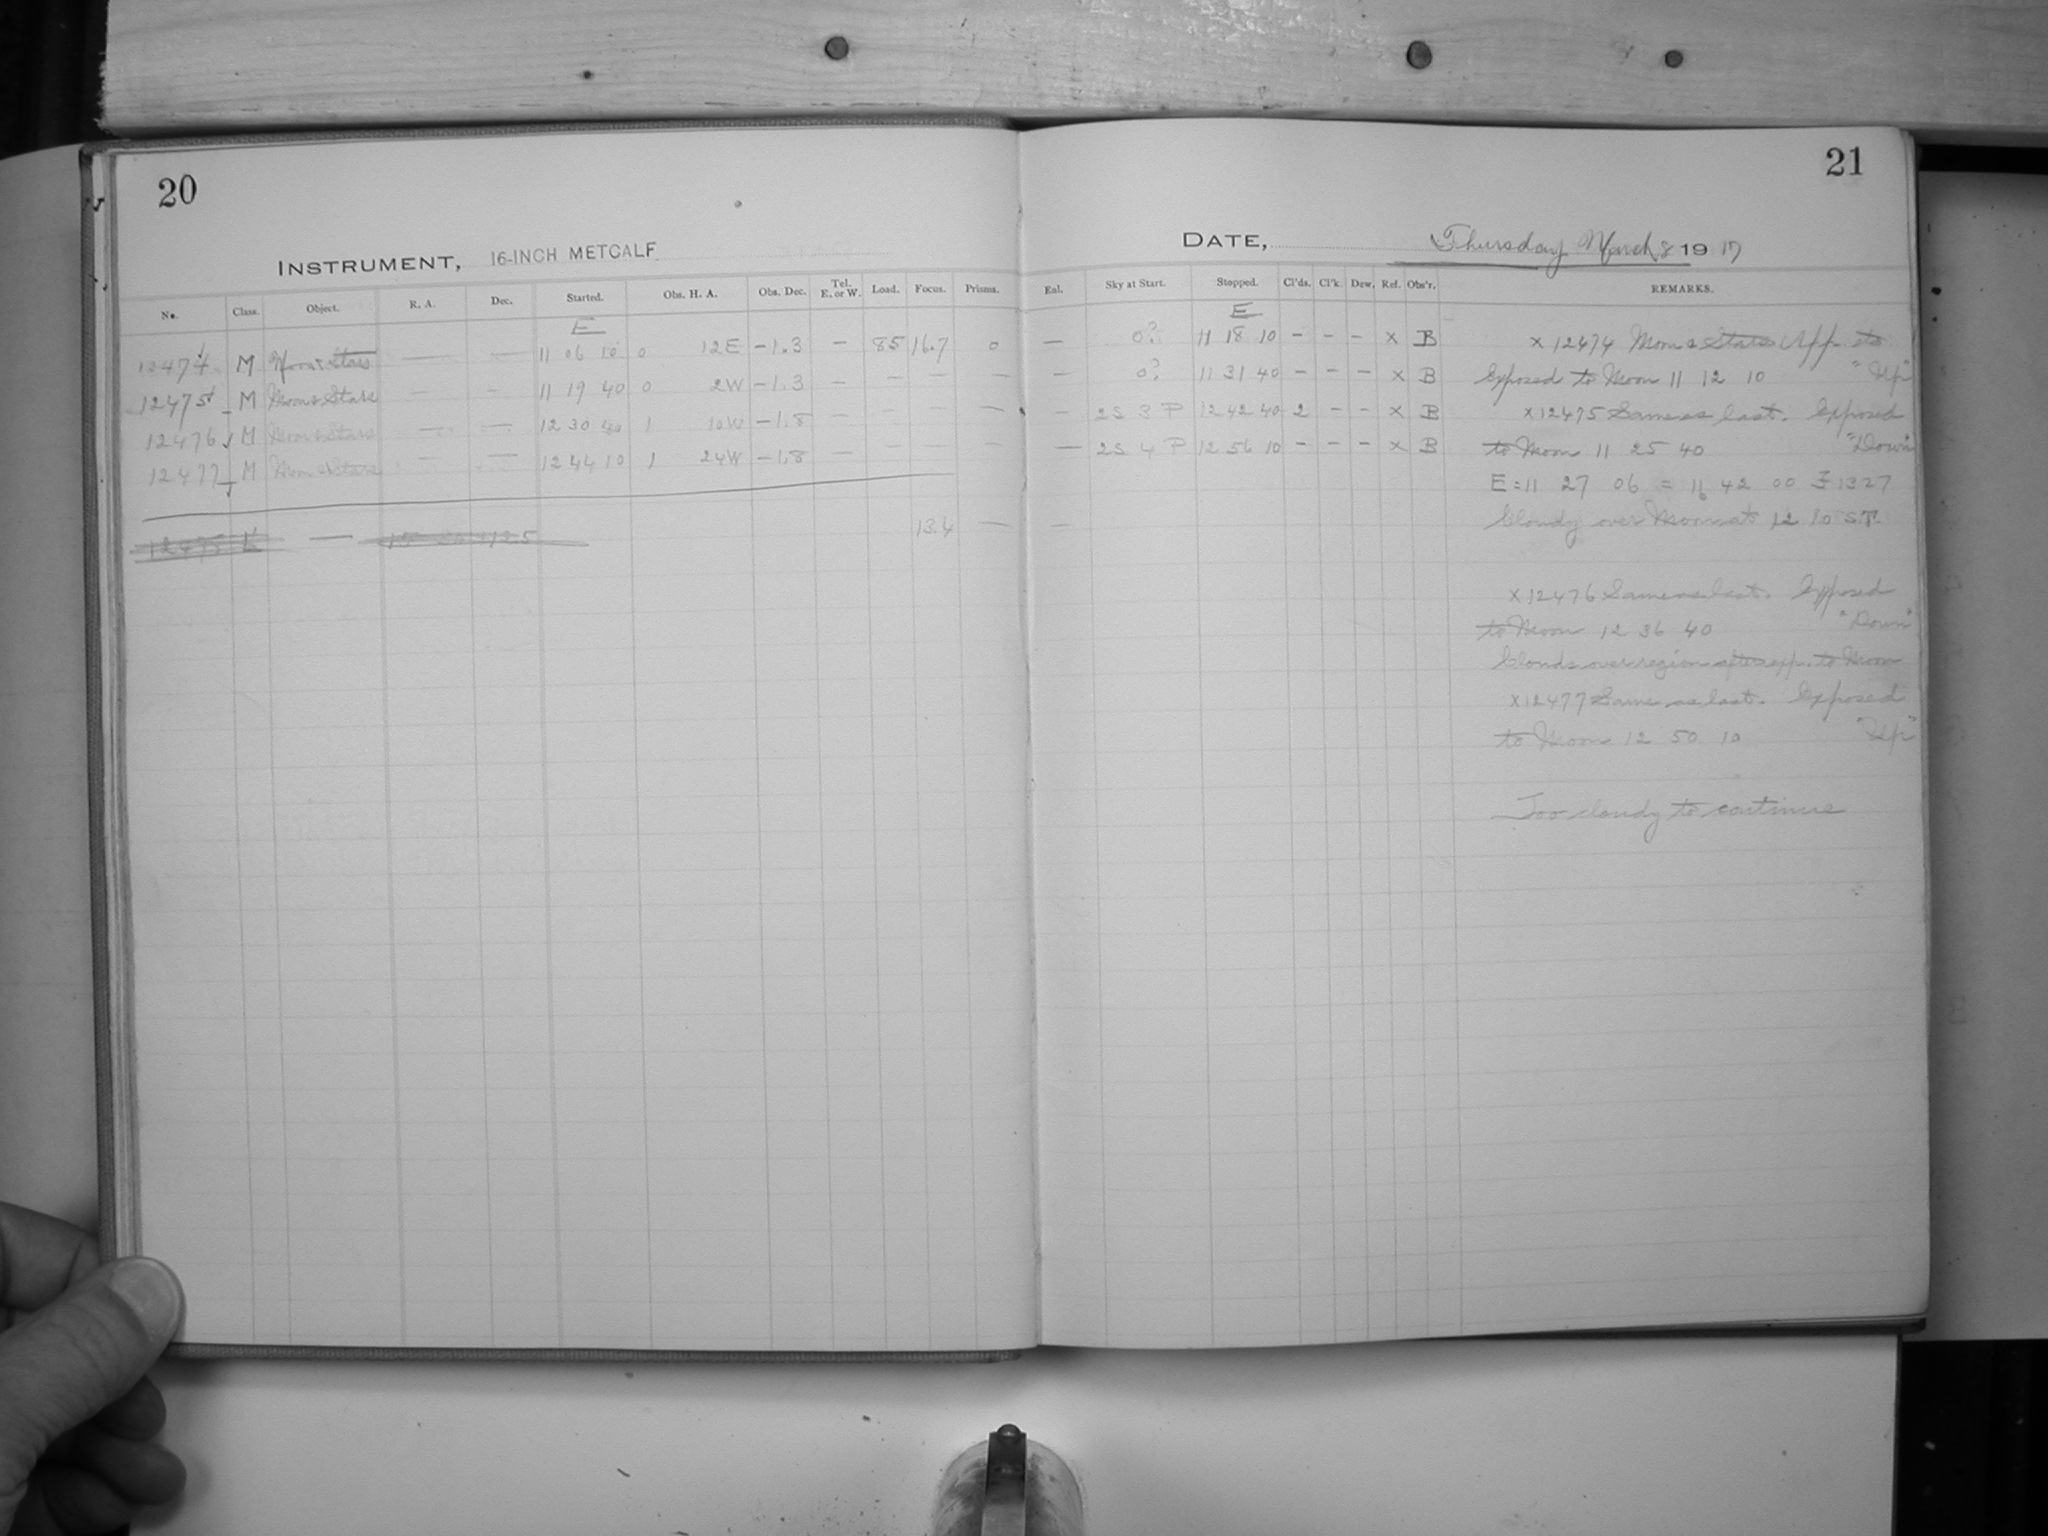 20
21
INSTRUMENT, 16-INCH METCALF
DATE, Thursday March 8 1917
No. Class. Object. R. A. Dec. Started. Obs. H. A. Obs. Dec. Tel. E. or W. Load. Focus. Prisms. Enl. Sky at Start. Stopped. Cl'ds. Cl'k. Dew. Ref. Obs'r. REMARKS.
E E
12474 M Moon & Stars — — 11 06 10 0 12E -1.3 — 85 16.7 0 — 0? 11 18 10 - - - x B
12475 M Moon & Stars — - 11 19 40 0 2W -1.3 — — — — — 0? 11 31 40 - - - x B
12476 M Moon & Stars — — 12 30 40 1 10W -1.8 — — — — — 2S 3 P 12 42 40 2 - - x B
12477 M Moon & Stars — — 12 44 10 1 24W -1.8 — — — — — 2S 4 P 12 56 10 - - - x B
12475 — 13.4 — —
x 12474 Moon & Stars App. to
Exposed to Moon 11 12 10 "Up"
x 12475 Same as last. Exposed
to Moon 11 25 40 "Down"
E = 11 27 06 = 11 42 00 1327
Cloudy over Moon at 12 10 S.T.
x 12476 Same as last. Exposed
to Moon 12 36 40 "Down"
Clouds over region after exp. to Moon
x 12477 Same as last. Exposed
to Moon 12 50 10 "Up"
Too cloudy to continue